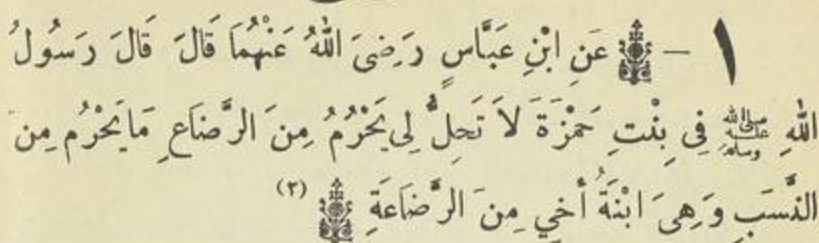 ١ – عَنِ ابْنِ عَبَّاسٍ رَضِىَ اللهُ عَنْهُمَا قَالَ قَالَ رَسُولُ
اللهِ ﷺ فِى بِنْتِ حَمْزَةَ لاَ تَحِلُّ لِى يَحْرُمُ مِنَ الرَّضَاعِ مَا يَحْرُم مِنَ
النَّسَبِ وَهِىَ ابْنَةُ أَخِي مِنَ الرَّضَاعَةِ (٢)